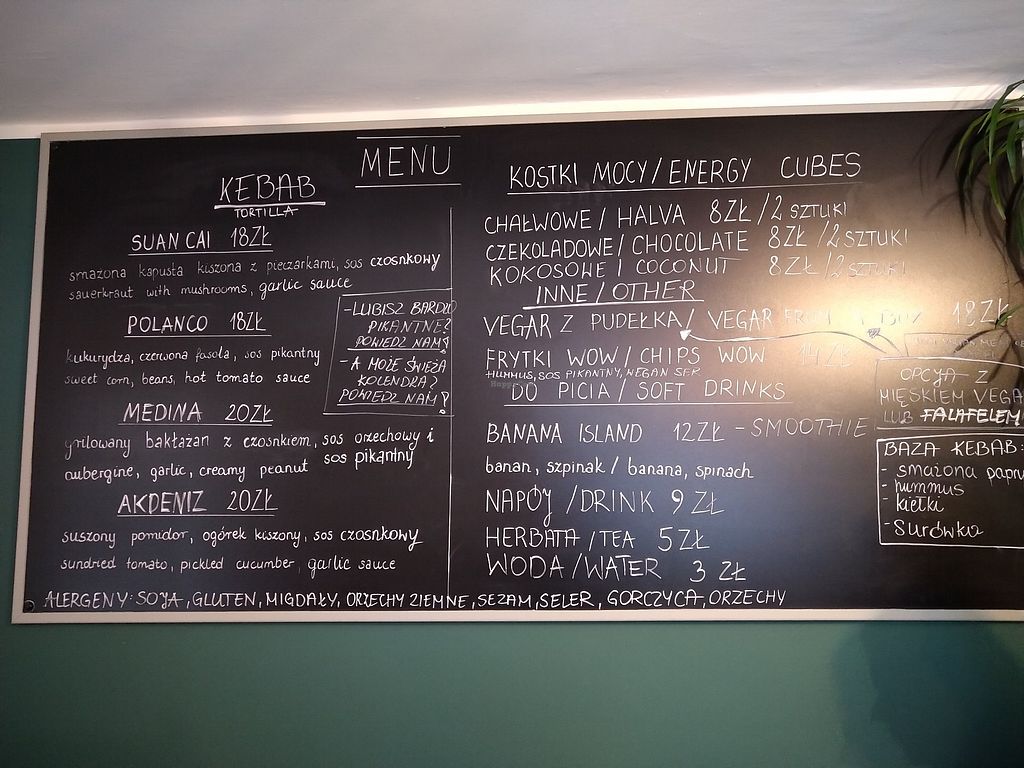 MENU
KEBAB
TORTILLA
SUAN CAI 18ZŁ
smażona kapusta kiszona z pieczarkami, sos czosnkowy
sauerkraut with mushrooms, garlic sauce
POLANCO 18ZŁ
kukurydza, czerwona fasola, sos pikantny
sweet corn, beans, hot tomato sauce
-LUBISZ BARDZO
PIKANTNE?
POWIEDZ NAM!
- A MOŻE ŚWIEŻA
KOLENDRA?
POWIEDZ NAM!
MEDINA 20ZŁ
grilowany bakłażan z czosnkiem, sos orzechowy i
sos pikantny
aubergine, garlic, creamy peanut
AKDENIZ 20ZŁ
suszony pomidor, ogórek kiszony, sos czosnkowy
sundried tomato, pickled cucumber, garlic sauce
ALERGENY: SOJA, GLUTEN, MIGDAŁY, ORZECHY ZIEMNE, SEZAM, SELER, GORCZYCA, ORZECHY
KOSTKI MOCY/ENERGY CUBES
CHAŁWOWE/HALVA 8ZŁ/2 SZTUKI
CZEKOLADOWE/CHOCOLATE 8ZŁ/2 SZTUKI
KOKOSOWE/COCONUT 8ZŁ/2 SZTUKI
INNE/OTHER
VEGAR Z PUDEŁKA/ VEGAR FROM 18ZŁ
FRYTKI WOW/CHIPS WOW 14ZŁ
HUMMUS, SOS PIKANTNY, WEGAN SER
DO PICIA/SOFT DRINKS
BANANA ISLAND 12ZŁ - SMOOTHIE
banan, szpinak/banana, spinach
NAPÓJ/DRINK 9 ZŁ
HERBATA/TEA 5ZŁ
WODA/WATER 3 ZŁ
OPCJA Z
MIĘSKIEM VEGA
LUB FALAFELEM
BAZA KEBAB:
- smażona papry
- hummus
- kiełki
- surówka